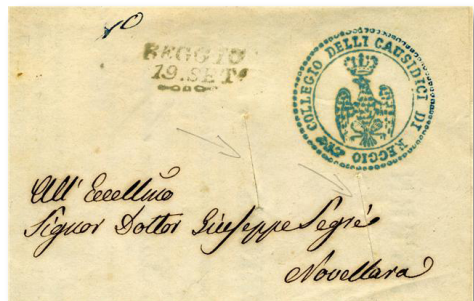 REGGIO
19. SET.
COLLEGIO DELLI CAUSIDICI DI REGGIO
All' Eccellmo
Signor Dottor Giuseppe Segrè
Novellara